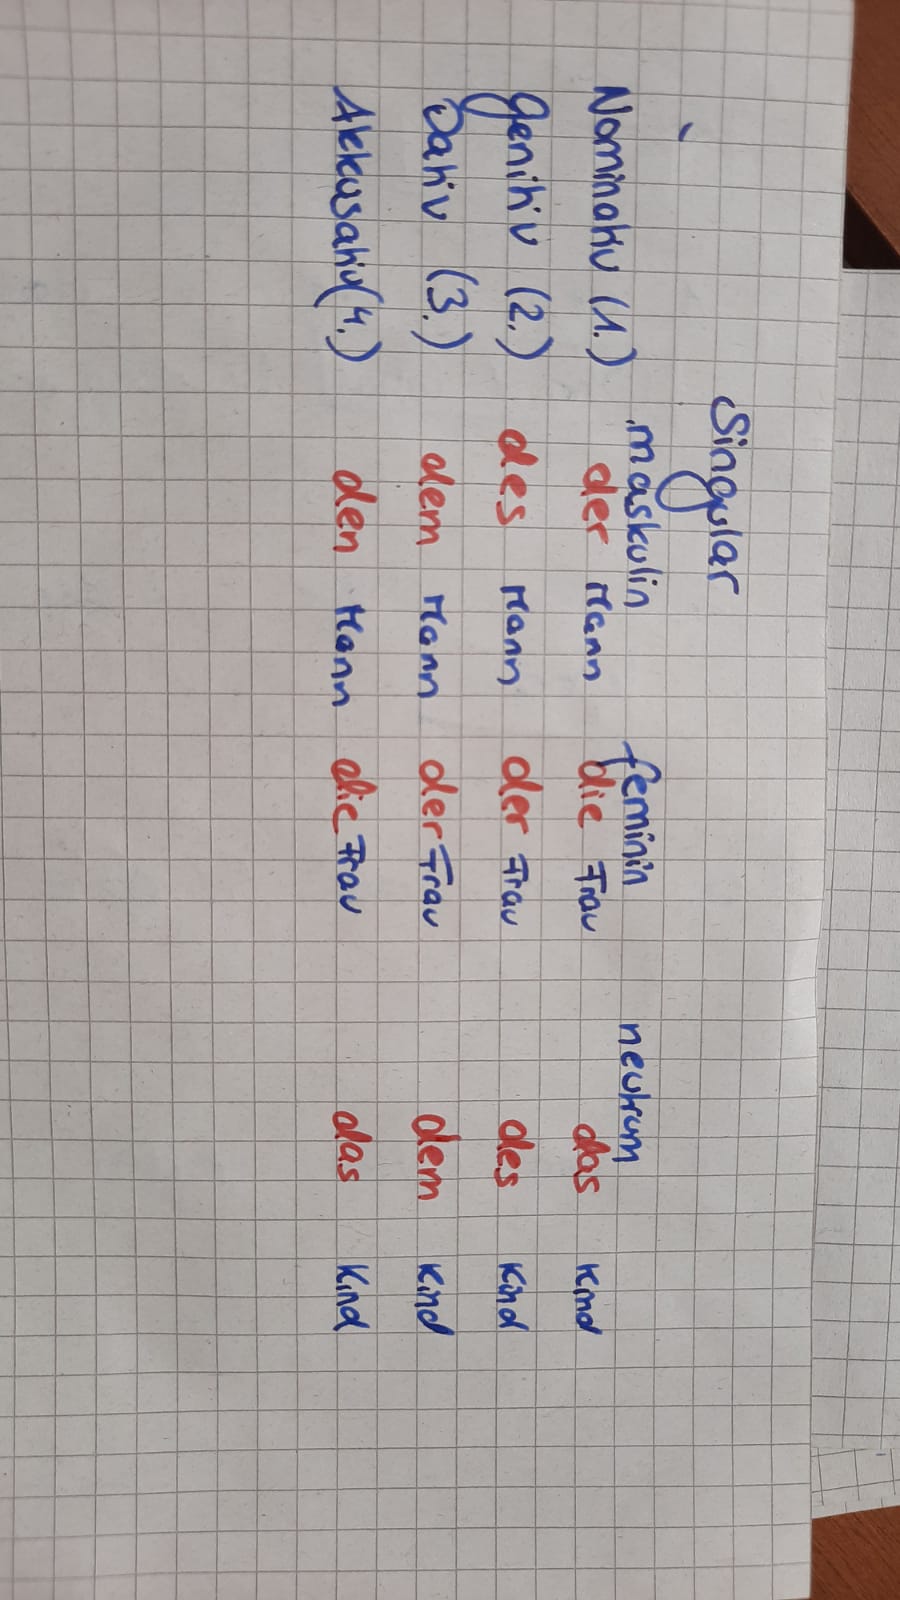 Singular
maskulin feminin neutrum
Nominativ (1.) der Mann die Frau das Kind
Genitiv (2.) des Mann der Frau des Kind
Dativ (3.) dem Mann der Frau dem Kind
Akkusativ (4.) den Mann die Frau das Kind